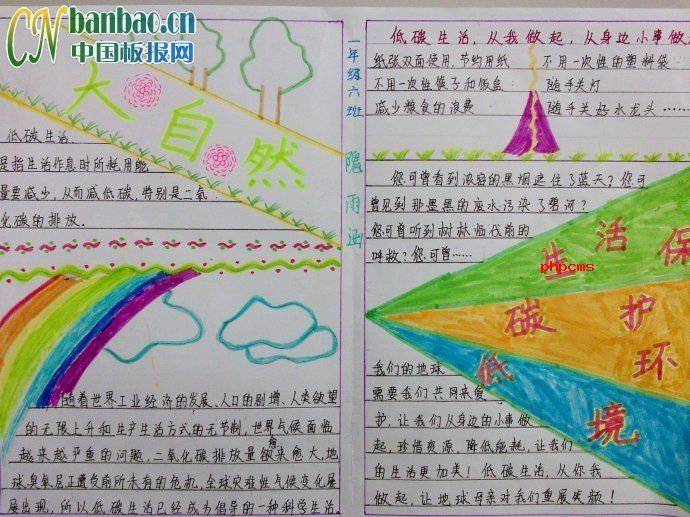 CN banbao.cn
中国板报网
大自然
低碳生活
是指生活作息时所耗用能
量要减少，从而减低碳，特别是二氧
化碳的排放．
一年级六班
隗雨涵
随着世界工业经济的发展、人口的剧增、人类欲望
的无限上升和生产生活方式的无节制，世界气候面临
越来越严重的问题，二氧化碳排放量愈来愈大，地
球臭氧层正遭受前所未有的危机，全球灾难性气候变化屡
屡出现，所以低碳生活已经成为倡导的一种科学生活
低碳生活，从我做起，从身边小事做起
纸张双面使用，节约用纸
不用一次性的塑料袋
不用一次性筷子和饭盒
随手关灯
减少粮食的浪费
随手关好水龙头……
您可曾看到浓密的黑烟遮住了蓝天？您可
曾见到那墨黑的废水污染了碧河？
您可曾听到树林临伐前的
呼救？您可曾……
生活保
phpcms
碳护
低环
境
我们的地球
需要我们共同来爱
护，让我们从身边的小事做
起，珍惜资源，降低能耗，让我们
的生活更加美！低碳生活，从你我
做起，让地球母亲对我们重展笑颜！